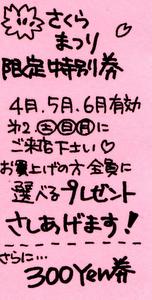 さくら
まつり
限定特別券
4月、5月、6月有効
第2.土日月に
ご来店下さい♡
お買上げの方全員に
選べるプレゼント
さしあげます!
さらに…
300Yen券